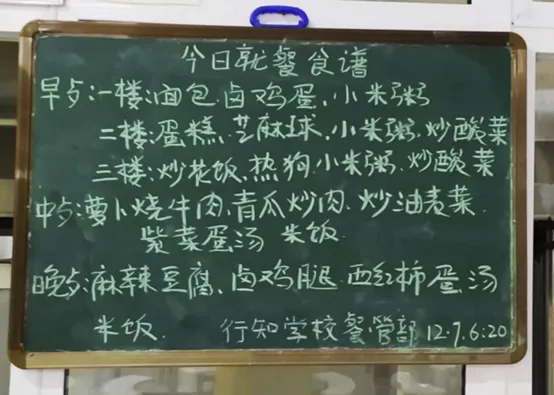 今日就餐食谱
早歺:一楼:面包.卤鸡蛋.小米粥
二楼:蛋糕.芝麻球.小米粥.炒酸菜
三楼:炒花饭.热狗.小米粥.炒酸菜
中歺:萝卜烧牛肉.青瓜炒肉.炒油麦菜
紫菜蛋汤 米饭
晚歺:麻辣豆腐.卤鸡腿 西红柿蛋汤
米饭. 行知学校餐管部 12.7.6:20